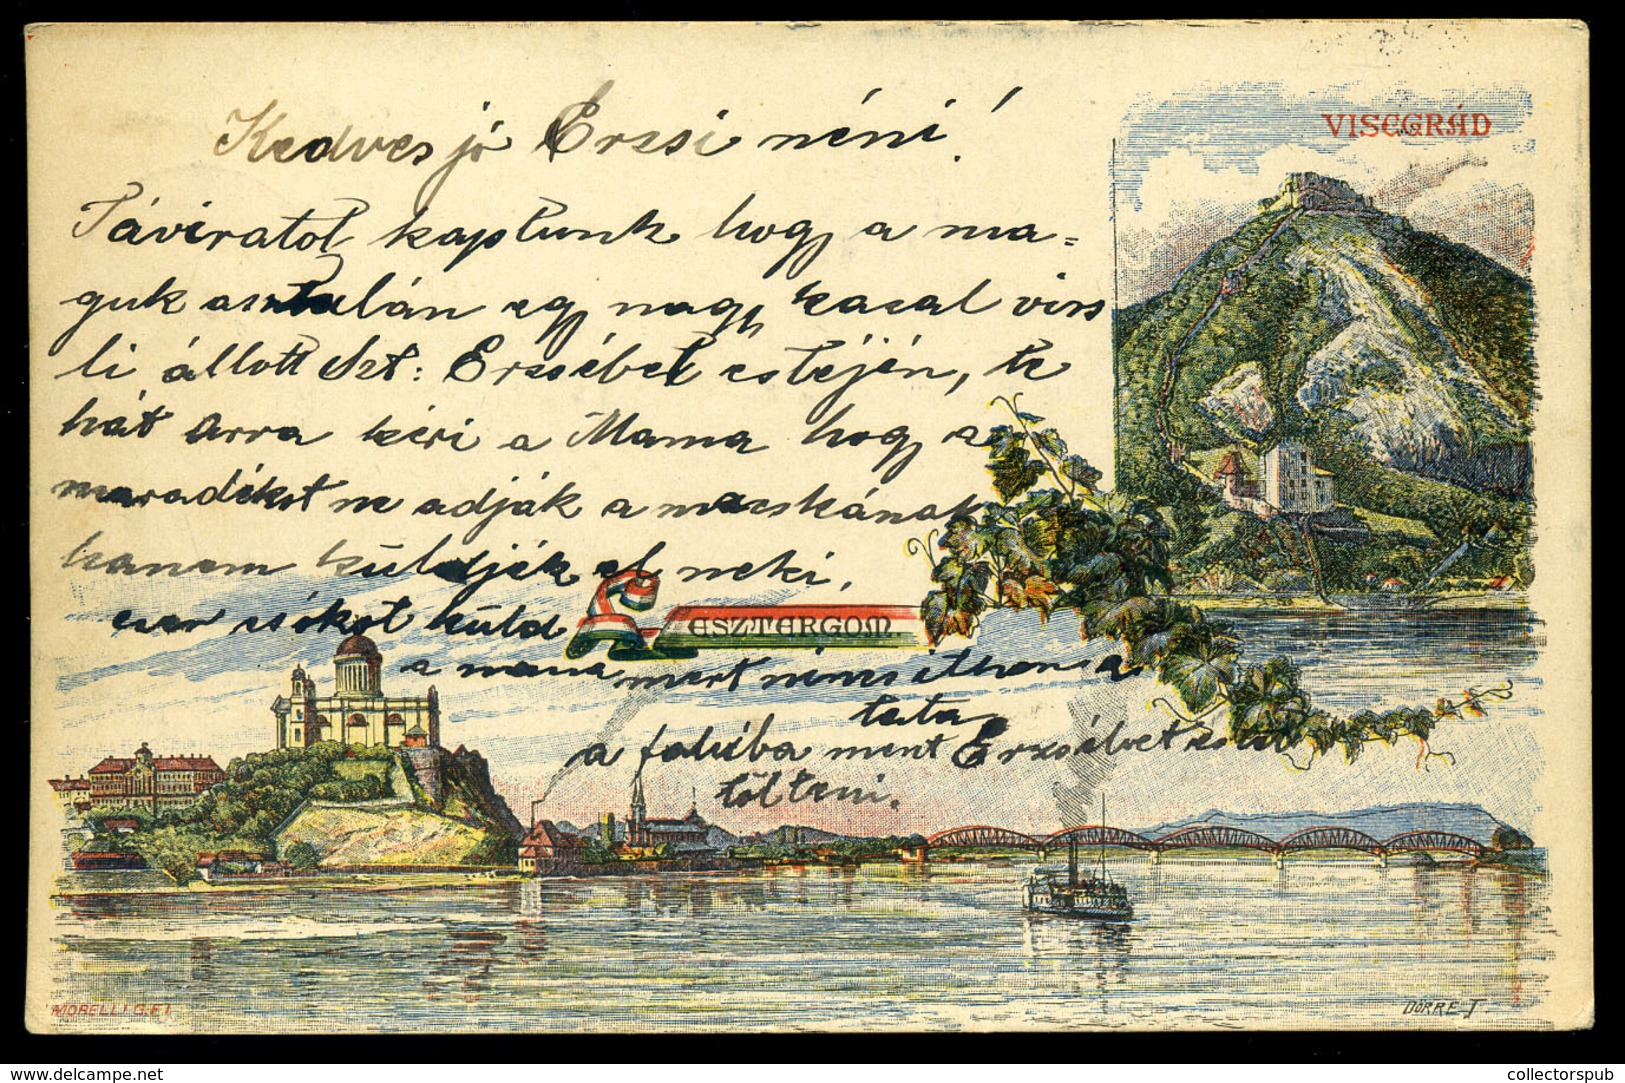 Kedves jó Erzsi néni!
VISEGRÁD
Táviratot kaptunk hogy a ma=
guk asztalán egy nagy kacal virs
li állott Szt: Erzsébet estéjén, te
hát arra kéri a Mama hogy a
maradékot ne adják a macskának
hanem küldjék el neki,
ezer csókot küld
ESZTERGOM
a mama mert nincs itthon a
tata,
a faluba ment Erzsébetet
tölteni.
MORELLI G.F.I.
DÖRRE T.
collectorspub
delcampe.net